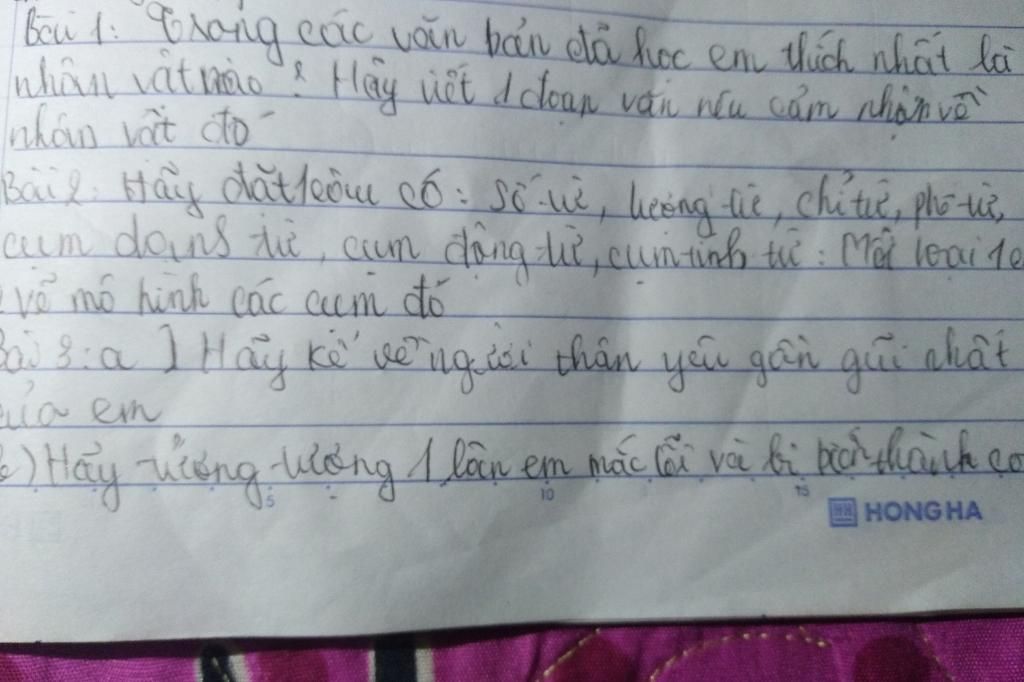 Bài 1: Trong các văn bản đã học em thích nhất là
nhân vật nào? Hãy viết 1 đoạn văn nêu cảm nhận về
nhân vật đó
Bài 2: Hãy đặt câu có: số từ, lượng từ, chỉ từ, phó từ,
cụm danh từ, cụm động từ, cụm tính từ: Mỗi loại 1c
vẽ mô hình các cụm đó
Bài 3: a) Hãy kể về người thân yêu gần gũi nhất
của em
) Hãy tưởng tượng 1 lần em mắc lỗi và bị biến thành co
5 10 15
HONG HA